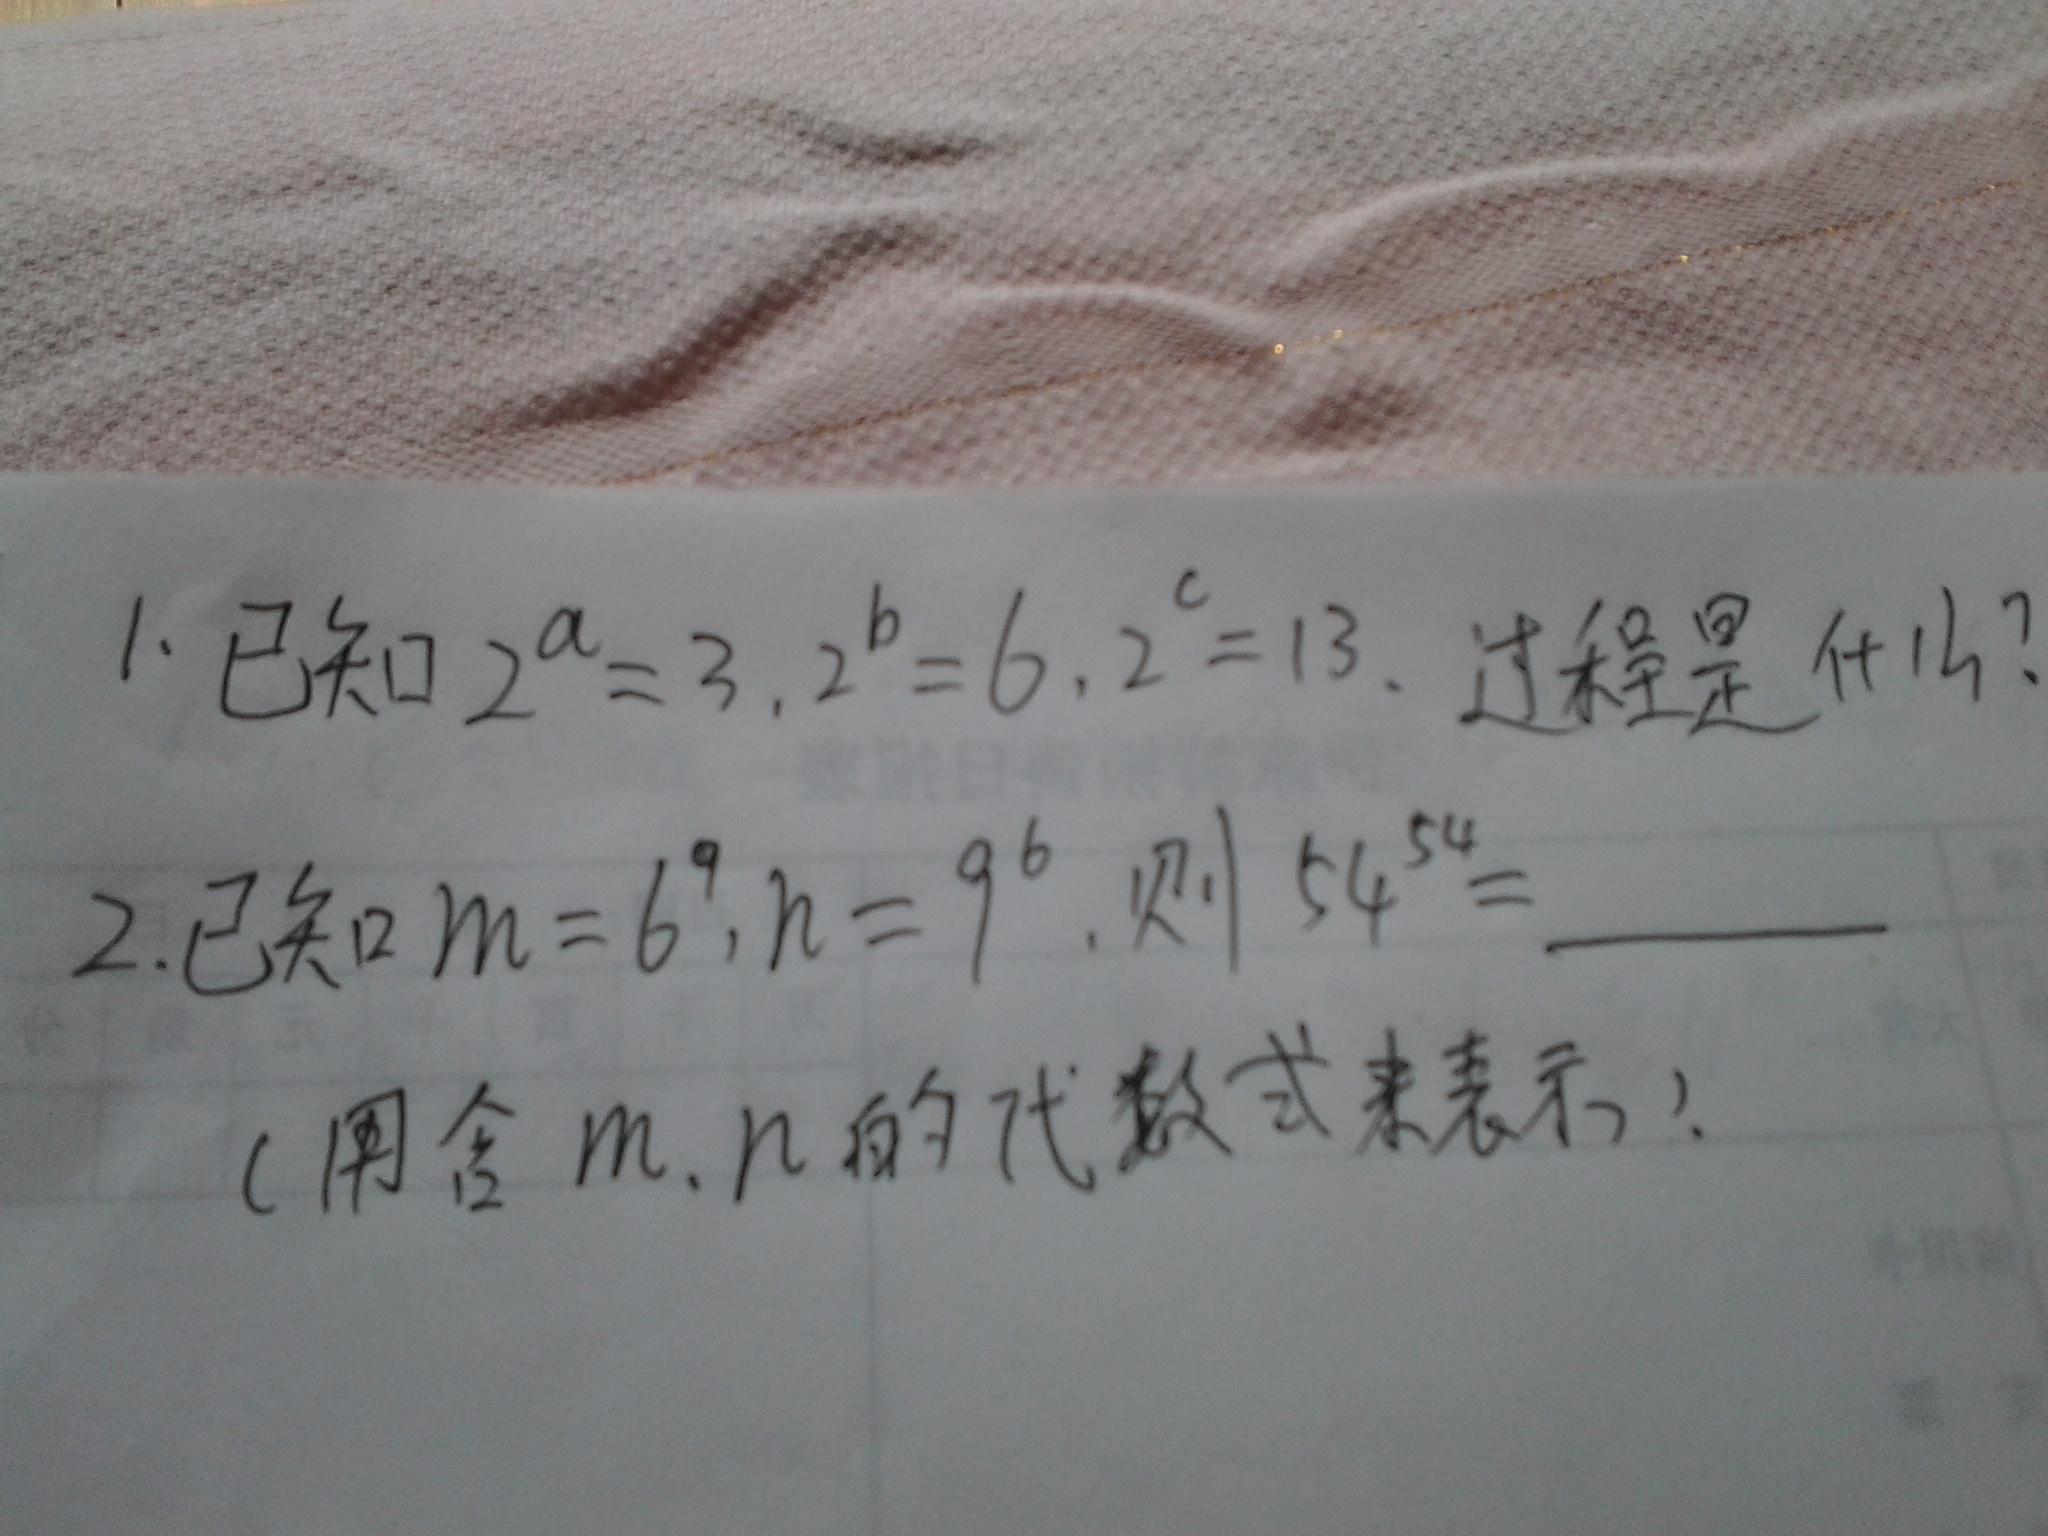 1. 已知 2^a = 3, 2^b = 6, 2^c = 13. 过程是什么?
2. 已知 m = 6^9, n = 9^6, 则 54^54 = ______
(用含 m、n 的代数式来表示).